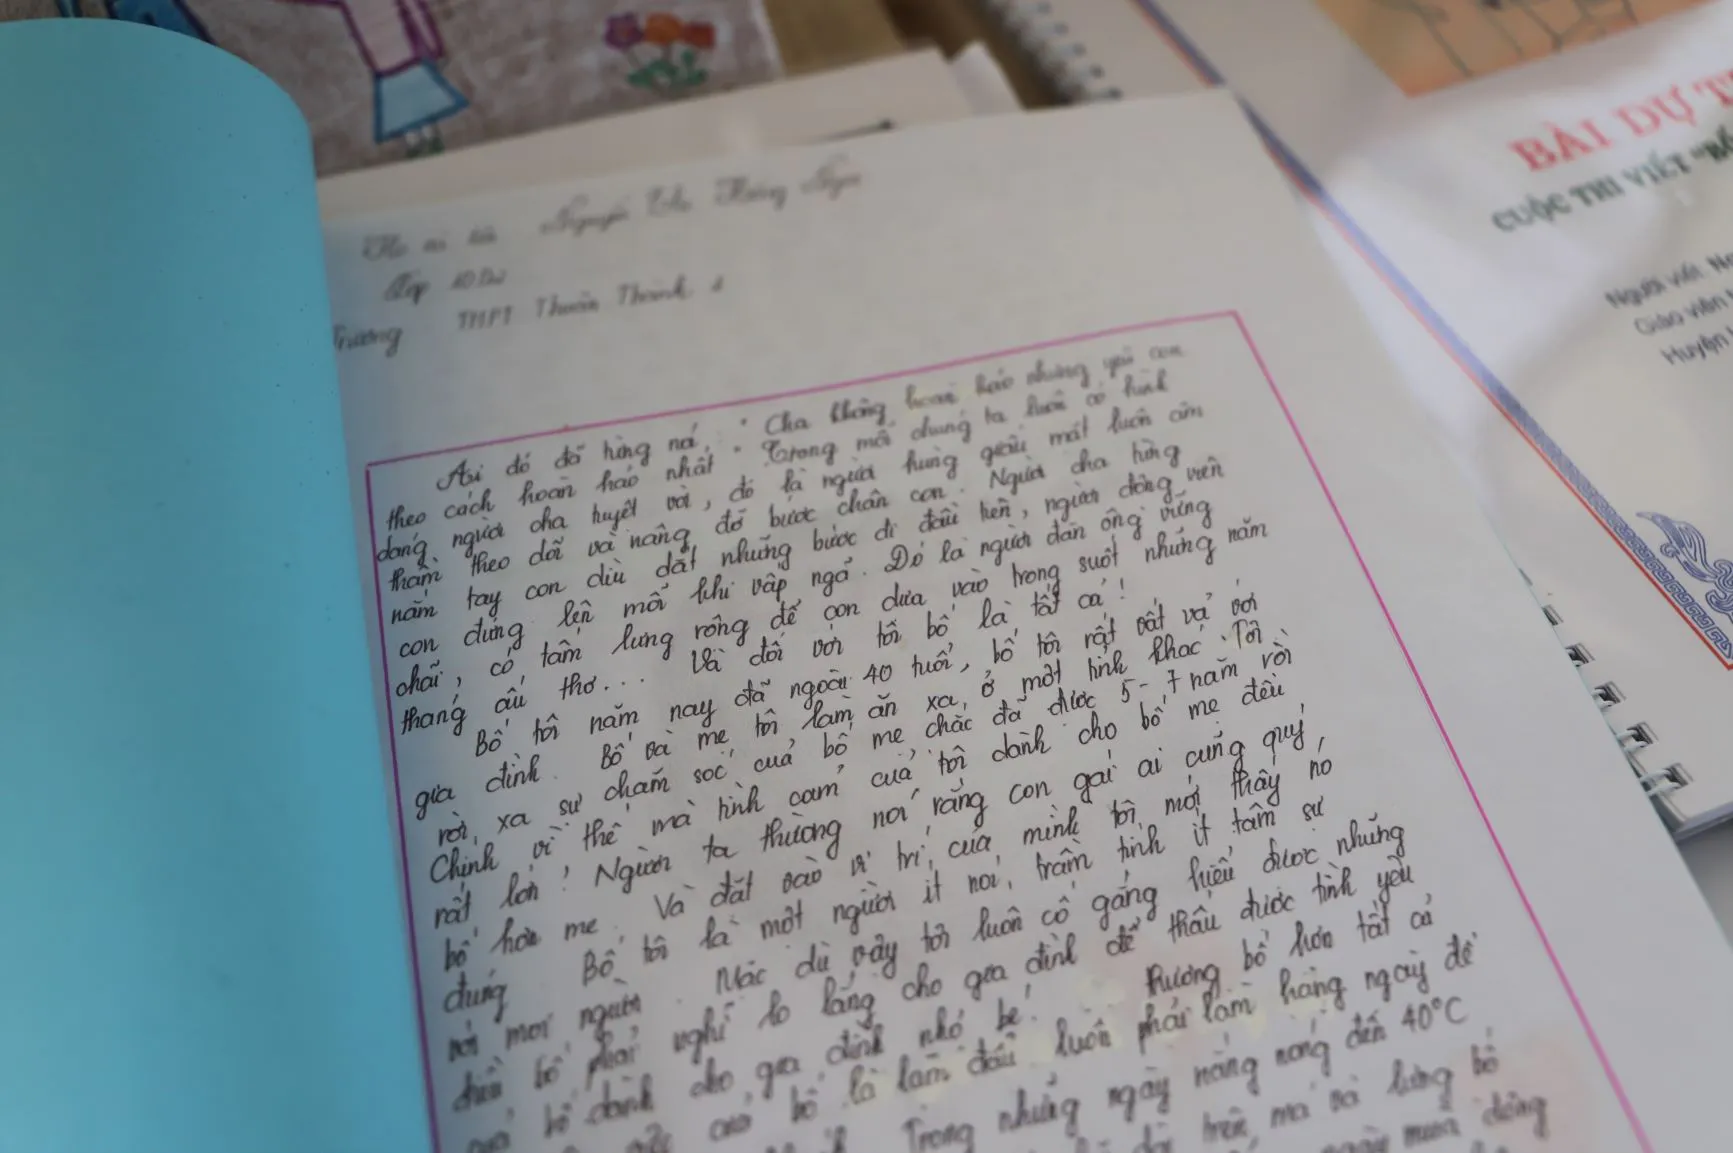 Họ và tên Nguyễn Thị Hồng Nga
Lớp
Trường THPT Thuận Thành 1
Ai đó đã từng nói, "Cha không hoàn hảo nhưng yêu con
theo cách hoàn hảo nhất". Trong mỗi chúng ta luôn có hình
dáng người cha tuyệt vời, đó là người hùng giấu mặt luôn âm
thầm theo dõi và nâng đỡ bước chân con. Người cha từng
nắm tay con dìu dắt những bước đi đầu tiên, người động viên
con đứng lên mỗi khi vấp ngã. Đó là người đàn ông vững
chãi, có tấm lưng rộng để con dựa vào trong suốt những năm
tháng ấu thơ... Và đối với tôi bố là tất cả!
Bố tôi năm nay đã ngoài 40 tuổi, bố tôi rất vất vả với
gia đình. Bố và mẹ tôi làm ăn xa, ở một tỉnh khác. Tôi
rời xa sự chăm sóc của bố mẹ chắc đã được 5-7 năm rồi
Chính vì thế mà tình cảm của tôi dành cho bố mẹ đều
rất lớn! Người ta thường nói rằng con gái ai cũng quý
bố hơn mẹ. Và đặt vào vị trí của mình tôi mới thấy nó
đúng. Bố tôi là một người ít nói, trầm tính ít tâm sự
với mọi người. Mặc dù vậy tôi luôn cố gắng hiểu được những
điều bố phải nghĩ lo lắng cho gia đình để thấu được tình yêu
của bố dành cho gia đình nhỏ bé! Thương bố hơn tất cả
của bố là làm đấu luôn phải làm hàng ngày để
Trong những ngày nắng nóng đến 40°C
trên, má và lưng bố
ngày mưa dông
BÀI DỰ
CUỘC THI VIẾT "BỐ
Người viết
Giáo viên
Huyện